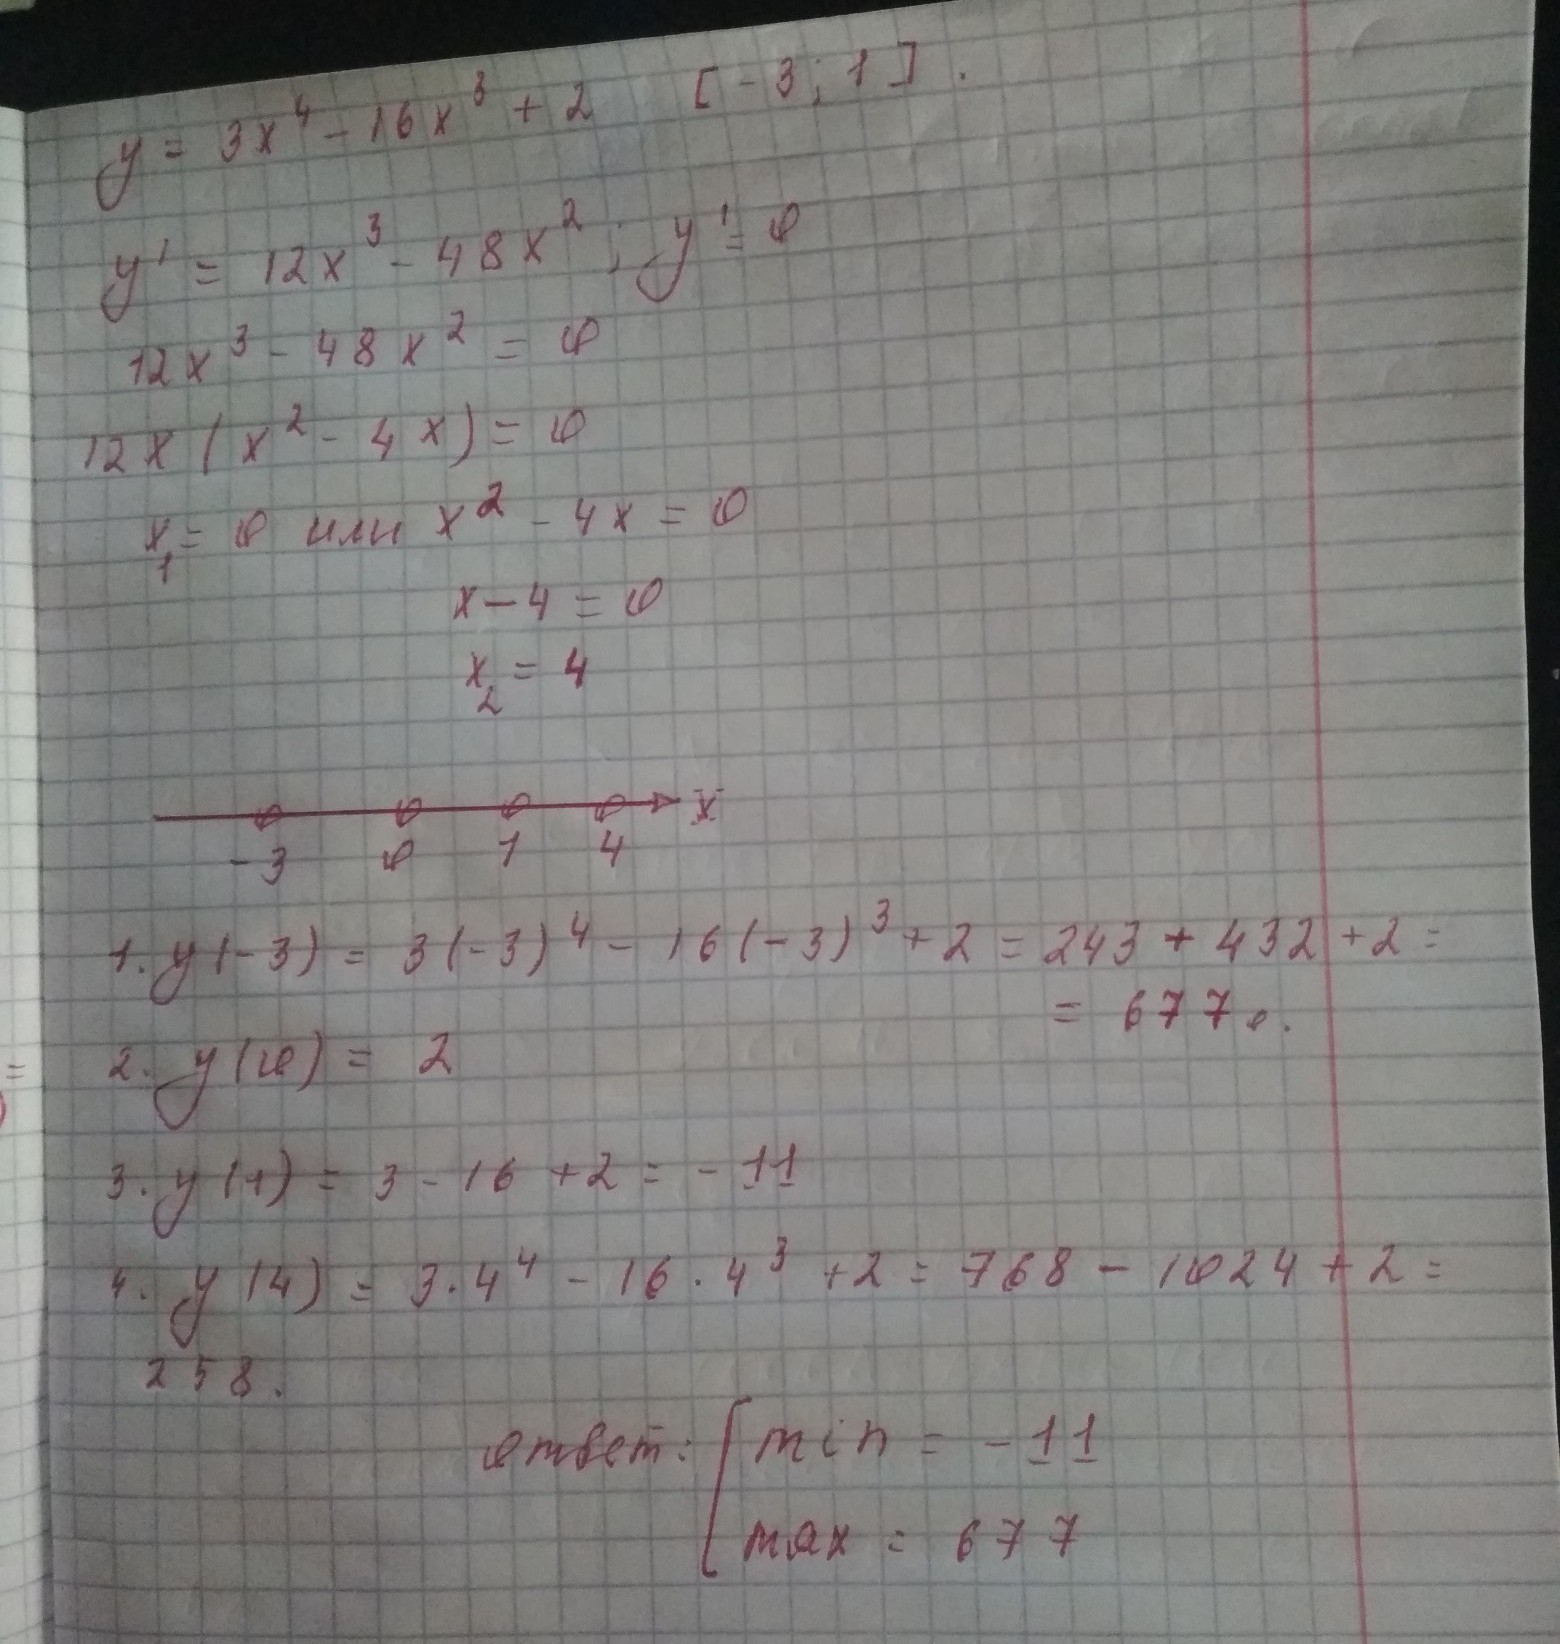 y = 3x⁴ - 16x³ + 2 [-3; 1].
y' = 12x³ - 48x²; y' = 0
12x³ - 48x² = 0
12x(x² - 4x) = 0
x₁ = 0 или x² - 4x = 0
x - 4 = 0
x₂ = 4
x
-3 0 1 4
1. y(-3) = 3(-3)⁴ - 16(-3)³ + 2 = 243 + 432 + 2 =
= 677.
2. y(0) = 2
3. y(1) = 3 - 16 + 2 = -11
4. y(4) = 3·4⁴ - 16·4³ + 2 = 768 - 1024 + 2 =
258.
ответ: { min = -11
max = 677